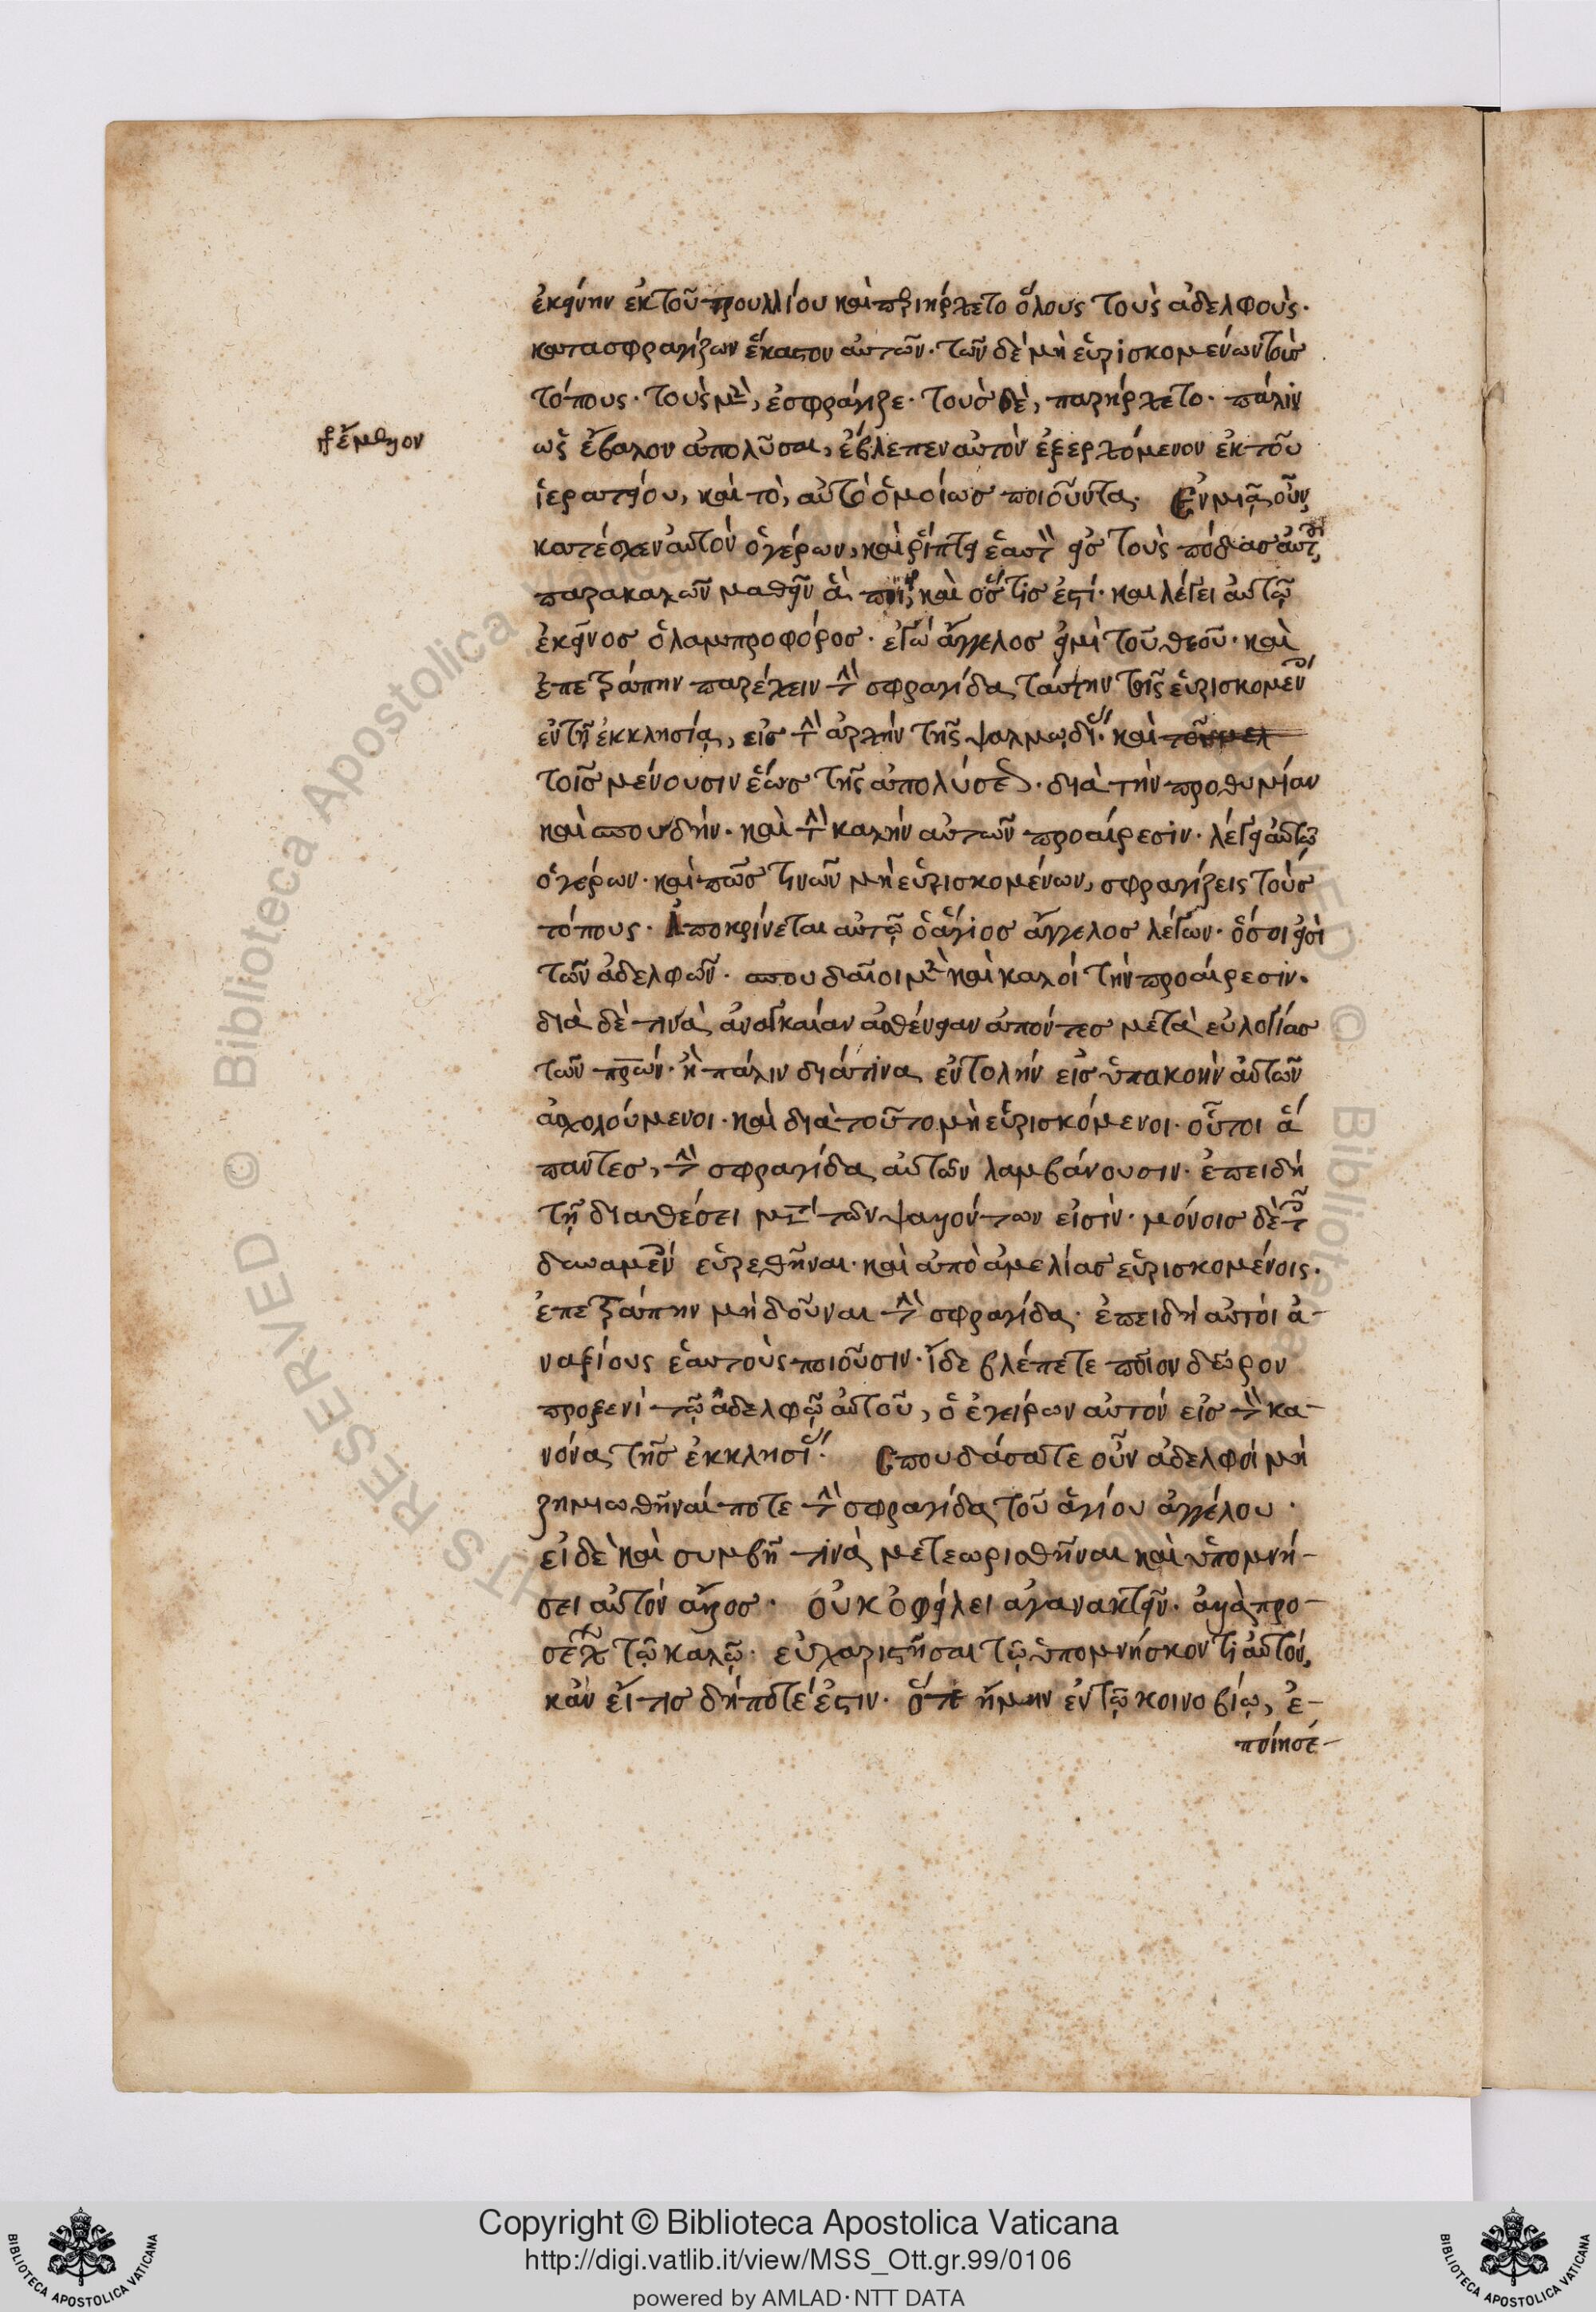 ἐκείνην ἐκ τοῦ τρουλλίου καὶ περιήρχετο ὅλους τοὺς ἀδελφοὺς·
κατασφραγίζων ἕκαστον αὐτῶν· τῶν δὲ μὴ εὑρισκομένων τοὺς
τόπους· τοὺς μὲν, ἐσφράγιζε· τοὺσ δὲ, παρήρχετο· πάλιν
ἔμελλον
ὡς ἔβαλον ἀπολῦσαι, ἔβλεπεν αὐτὸν ἐξερχόμενον ἐκ τοῦ
ἱερατείου, καὶ τὸ, αὐτὸ ὁμοίωσ ποιοῦντα. Ἐν μιᾷ οὖν
κατέσχεν αὐτὸν ὁ γέρων, καὶ ῥίπτει ἑαυτὸν εἰσ τοὺς πόδασ αὐτοῦ,
παρακαλῶν μαθεῖν ἃ ποιεῖ, καὶ ὅστισ ἐστί· καὶ λέγει αὐτῷ
ἐκεῖνοσ ὁ λαμπροφόροσ· ἐγὼ ἄγγελοσ εἰμὶ τοῦ θεοῦ· καὶ
ἐπετράπην παρέχειν τὴν σφραγίδα ταύτην τοῖς εὑρισκομένοις
ἐν τῇ ἐκκλησίᾳ, εἰσ τὴν ἀρχήν τῆς ψαλμῳδίας· καὶ
τοῖσ μένουσιν ἕωσ τῆς ἀπολύσεως· διὰ τὴν προθυμίαν
καὶ σπουδήν· καὶ τὴν καλήν αὐτῶν προαίρεσιν· λέγει αὐτῷ
ὁ γέρων· καὶ πῶσ τινῶν μὴ εὑρισκομένων, σφραγίζεις τοὺσ
τόπους· Ἀποκρίνεται αὐτῷ ὁ ἅγιοσ ἄγγελοσ λέγων· ὅσοι εἰσὶ
τῶν ἀδελφῶν· σπουδαῖοι μὲν καὶ καλοί τὴν προαίρεσιν·
διὰ δέ τινα ἀναγκαίαν ἀσθένειαν ἀπόντεσ μετὰ εὐλογίασ
τῶν πρων· ἢ πάλιν διά τινα ἐντολήν εἰσ ὑπακοὴν αὐτῶν
ἀσχολούμενοι· καὶ διὰ τοῦτο μὴ εὑρισκόμενοι· οὗτοι ἅ
παντεσ, τὴν σφραγίδα αὐτῶν λαμβάνουσιν· ἐπειδὴ
τῇ διαθέσει μετὰ τῶν ψαλλόντων εἰσὶν· μόνοισ δὲ τοῖς
δυναμένοις εὑρεθῆναι· καὶ ἀπὸ ἀμελίασ εὑρισκομένοις·
ἐπετράπην μὴ δοῦναι τὴν σφραγίδα· ἐπειδὴ αὐτοὶ ἀ-
ναξίους ἑαυτοὺς ποιοῦσιν· ἴδε βλέπετε ποῖον δῶρον
προξενὶ τῷ ἀδελφῷ αὐτοῦ, ὁ ἐγείρων αὐτόν εἰσ τὸν κα-
νόνα τῆσ ἐκκλησίας· Σπουδάσατε οὖν ἀδελφοί μὴ
ζημιωθῆναί ποτε τὴν σφραγίδα τοῦ ἁγίου ἀγγέλου·
εἰ δὲ καὶ συμβῇ τινὰ μετεωρισθῆναι καὶ ὑπομνή-
σει αὐτόν ἄλλοσ· οὐκ ὀφείλει ἀγανακτεῖν· ἀλλὰ προ-
σέχειν τῷ καλῷ· εὐχαριστῆσαι τῷ ὑπομνήσκοντι αὐτόν,
κἀν εἴ τισ δήποτέ ἐστιν· ὅτε ἤμην ἐν τῷ κοινοβίῳ, ἐ-
ποίησέ-